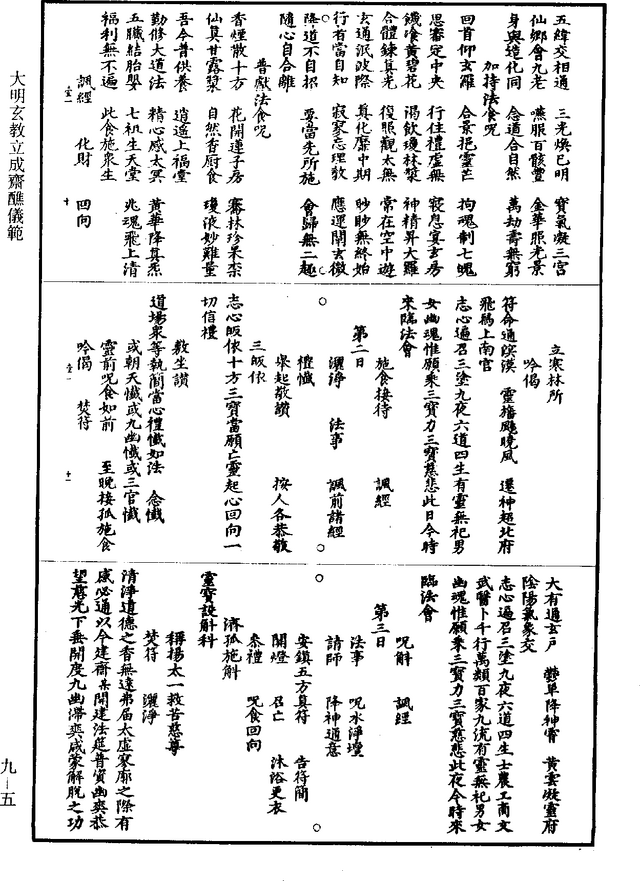 大明玄教立成齋醮儀範
五緯交相通　三光煥已明　寶氣凝三宮
仙鄉會九老　嚥服百骸豐　金華服光景
身與造化同　念道合自然　萬劫壽無窮
加持法食呪
回首仰玄羅　合景挹靈芒　拘魂制七魄
思審定中央　行住禮虛無　寢息宴玄房
饑飡黃碧花　渴飲瓊林漿　神精昇大羅
合體鍊真光　復服觀太無　常在空中遊
玄通沠波際　真化麋中期　眇眇無終始
行有當自知　寂寂志理教　應運開玄微
降道不自招　要當先所施　會歸無二趣
隨心自合離
普獻法食呪
香煙散十方　花開蓮子房　騫林珍果柰
仙真甘露漿　自然香廚食　瓊液妙難量
吾今普供養　逍遙上福堂
勤修大道法　精心感太冥　黃華降真炁
五臟結胎嬰　七祖生天堂　兆魂飛上清
福利無不遍　此食施衆生
諷經　化財　回向
十
立寒林所
吟偈
符命通溟漠　靈旛颺曉風　遷神超北府
飛舄上南宮
志心遍召三塗九夜六道四生有靈無祀男
女幽魂惟願乘三寶力三寶慈悲此日今時
來臨法會
施食接待　諷經
第二日
灑淨　法事　諷前諸經
禮懺
舉起敬讚　按人各恭敬
三皈依
志心皈依十方三寶當願亡靈起心回向一
切信禮
教坐讚
道場衆等執簡當心禮懺如法　念懺
或朝天懺或九幽懺或三官懺
靈前呪食如前　至晚接孤施食
吟偈　焚符
十一
大有通玄戶　鬱單降神霄　黃雲凝靈府
陰陽氣象交
志心遍召三塗九夜六道四生士農工商文
武醫卜千行萬類百家九流有靈無祀男女
幽魂惟願乘三寶力三寶慈悲此夜今時來
臨法會
呪斛　諷經
第三日
法事　呪水淨壇
請師　降神通意
安鎮五方真符　告符簡
開燈　召亡　沐浴更衣
參禮　呪食回向
濟孤施斛
靈寶設斛科
稱揚太一救苦慈尊
焚符　灑淨
清淨道德之香無遠弗屆太虛寥廓之際有
感必通以今建齋某開建法筵普資幽爽恭
望慈光下垂開度九幽滯爽咸蒙解脫之功
九—五